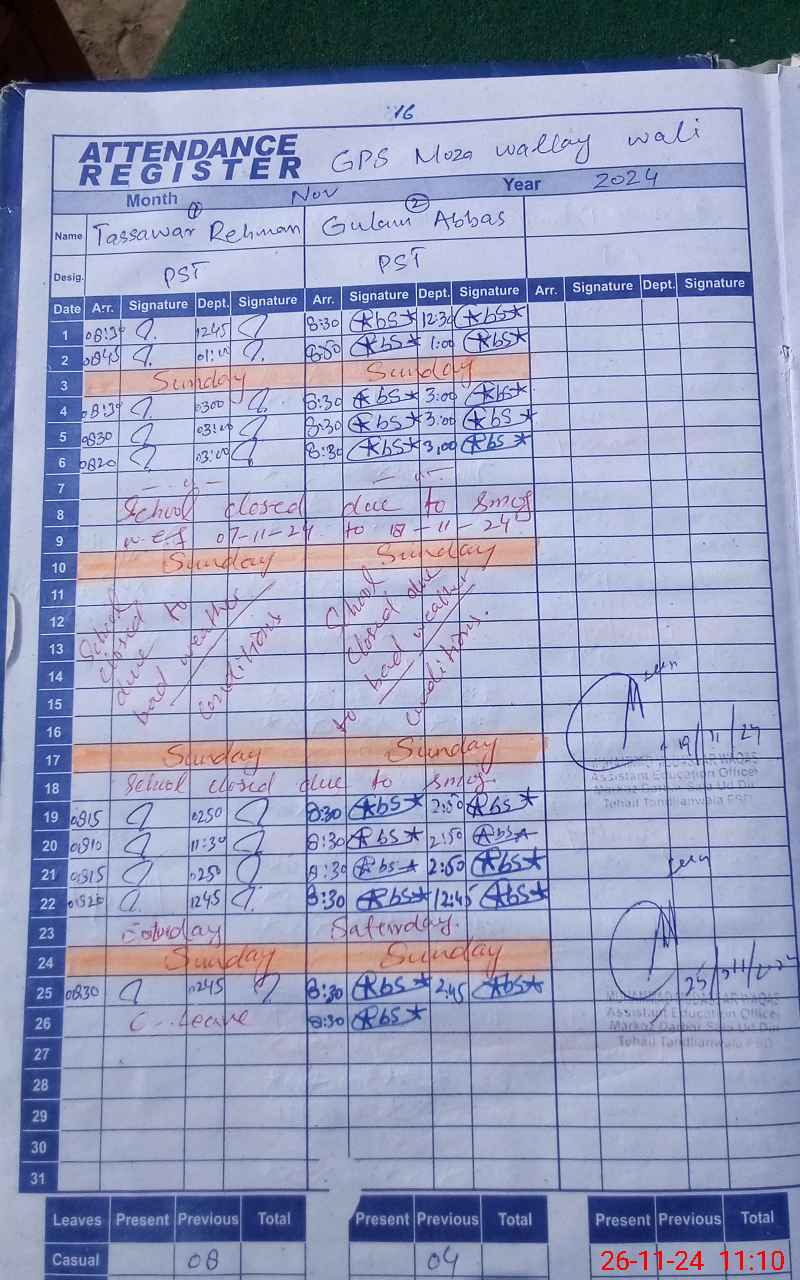 16
ATTENDANCE REGISTER GPS Moza wallay wali
Month Nov Year 2024
1 2
Name Tassawar Rehman Gulam Abbas
Desig. PST PST
Date Arr. Signature Dept. Signature Arr. Signature Dept. Signature Arr. Signature Dept. Signature
1 08:30 1245 8:30 12:30
2 0845 01:00 8:50 1:00
3 Sunday Sunday
4 08:30 0300 8:30 3:00
5 0830 03:00 8:30 3:00
6 0820 03:00 8:30 3,00
7
8 School closed due to smog
9 w.e.f 07-11-24 to 18-11-24
10 Sunday Sunday
11
12
13
14
15
16
School closed due to bad weather conditions
School closed due to bad weather conditions.
17 Sunday Sunday
18 School closed due to smog.
seen
19/11/24
Assistant Education Officer
19 0815 0250 8:30 2:50
20 0810 11:30 8:30 2:50
21 0815 0250 8:30 2:50
22 0820 1245 8:30 12:45
23 Saturday Saterday.
24 Sunday Sunday
25 0830 0245 8:30 2:45
26 C. Leave 8:30
seen
25/11/2024
Assistant Education Officer
27
28
29
30
31
Leaves Present Previous Total Present Previous Total Present Previous Total
Casual 08 04
26-11-24 11:10